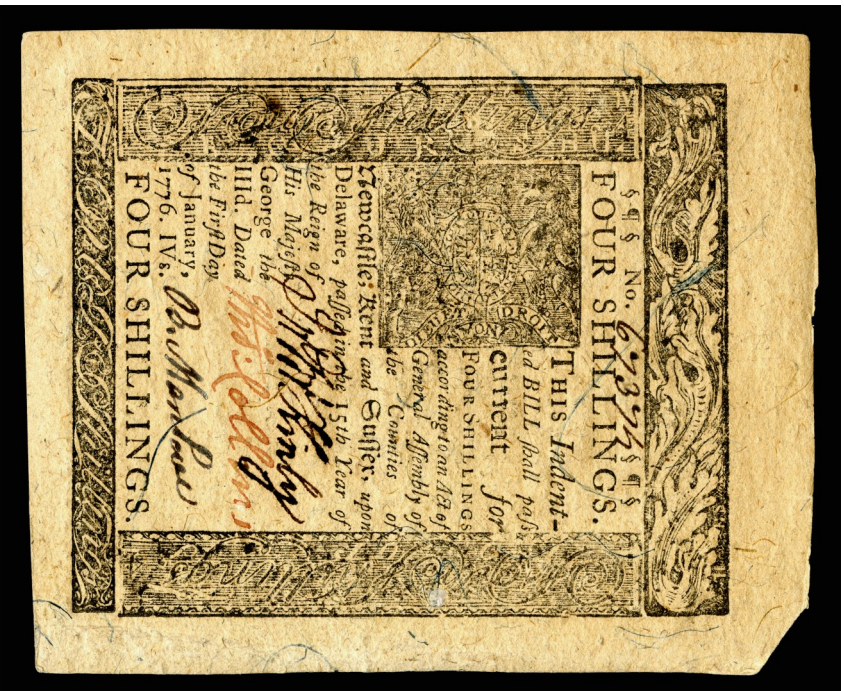 §¶§ No. §¶§
FOUR SHILLINGS.
Four Shillings
DIEU ET MON DROIT
THIS Indent-
ed BILL ſhall paſs
current for
FOUR SHILLINGS
according to an Act of
General Aſſembly of
the Counties of
Newcaſtle, Kent and Suſſex, upon
Delaware, paſſed in the 15th Year of
the Reign of
His Majeſty
George the
IIId. Dated
the Firſt Day
of January,
1776. IVs.
McKinly
Thos. Collins
Manlove
FOUR SHILLINGS.
Four Shillings
Four Shillings